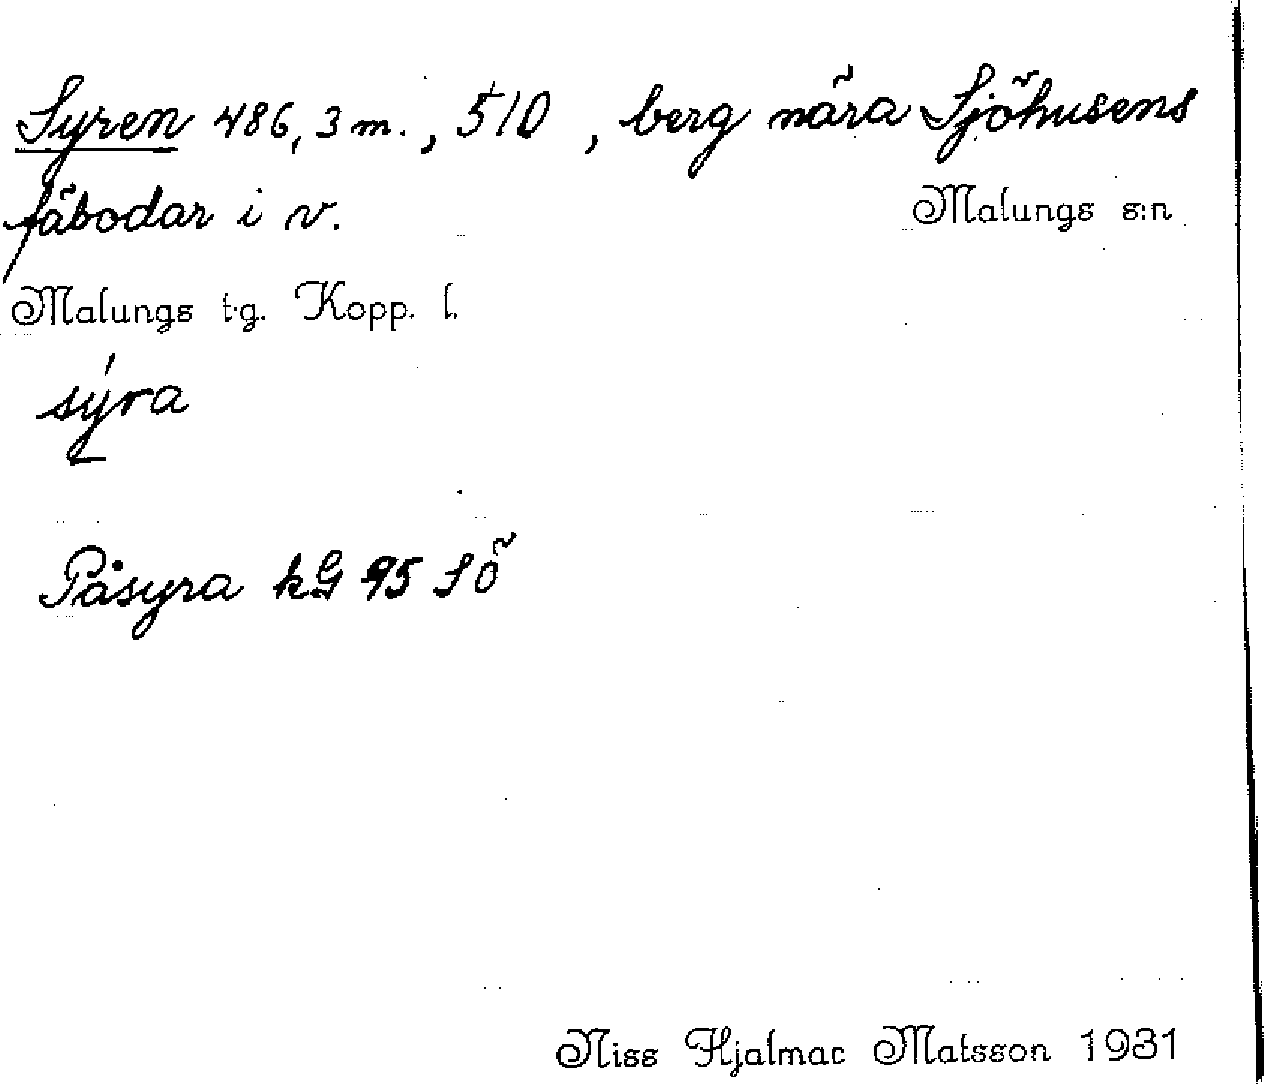 Syren 486,3 m., 510, berg nära Sjöhusens
fäbodar i v.
Malungs s:n
Malungs t.g. Kopp. l.
sýra
Påsyra kG 95 SÖ
Niss Hjalmar Matsson 1931